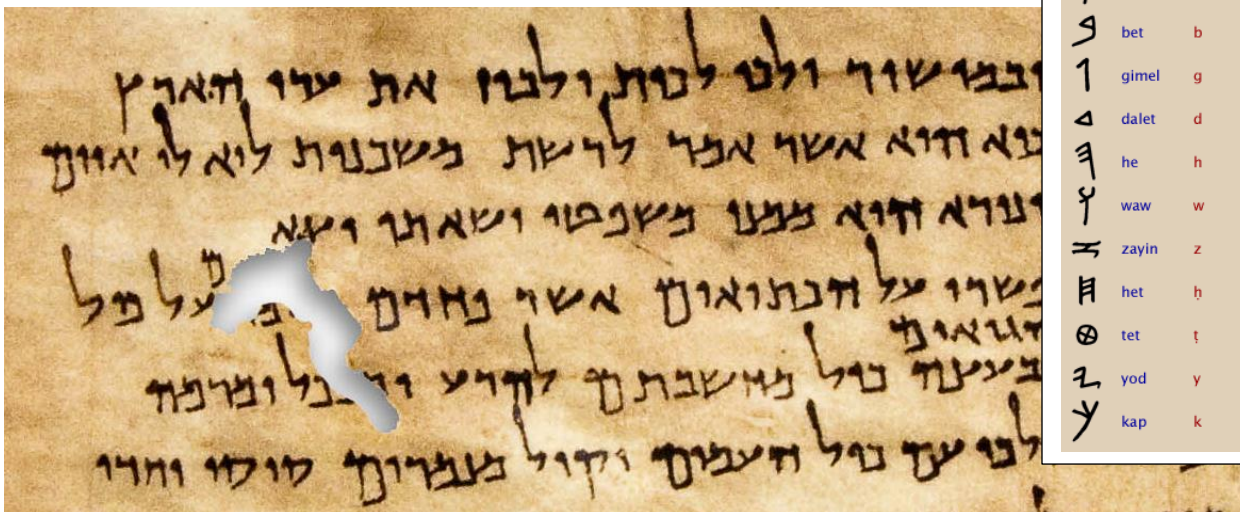 ובמישור ילכו לכות ולבוז את ערי הארץ
הוא אשר אמר לרשת משכנות לוא לו איום
ונורא הוא ממנו משפטו ושאתו יצא
פשרו על הכתיאים אשר פחדם על כול
הגואים
בעצה כול מחשבתם להרע ומרמה
ילכו עם כול העמים וקול מנמרים סוסו וחדו
bet b
gimel g
dalet d
he h
waw w
zayin z
het ḥ
tet ṭ
yod y
kap k